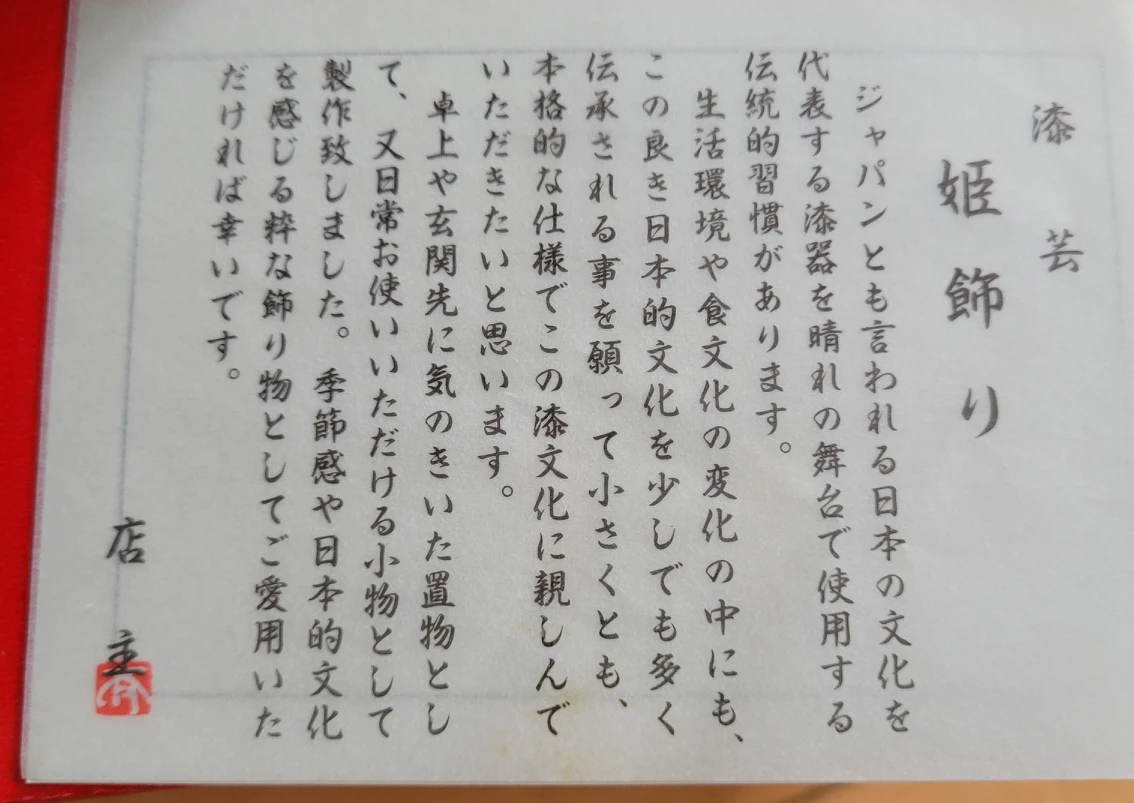 漆芸
姫飾り
ジャパンとも言われる日本の文化を
代表する漆器を晴れの舞台で使用する
伝統的習慣があります。
生活環境や食文化の変化の中にも、
この良き日本的文化を少しでも多く
伝承される事を願って小さくとも、
本格的な仕様でこの漆文化に親しんで
いただきたいと思います。
卓上や玄関先に気のきいた置物とし
て、又日常お使いいただける小物として
製作致しました。季節感や日本的文化
を感じる粋な飾り物としてご愛用いた
だければ幸いです。
店主